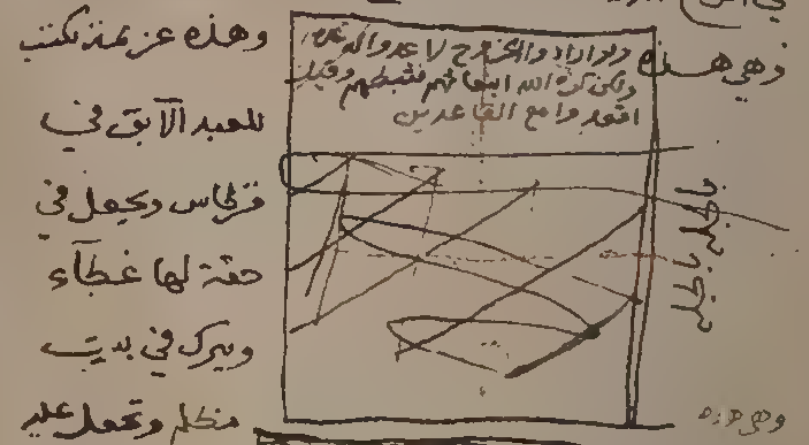 وهي هذه
ولو ارادوا الخروج لاعدوا له عدة
ولكن كره الله انبعاثهم فثبطهم وقيل
اقعدوا مع القاعدين
وهذه عزيمة تكتب
للعبد الآبق في
قرطاس وتجعل في
حقة لها غطآء
ويترك في بيت
مظلم وتجعل عليه
وهي هذه